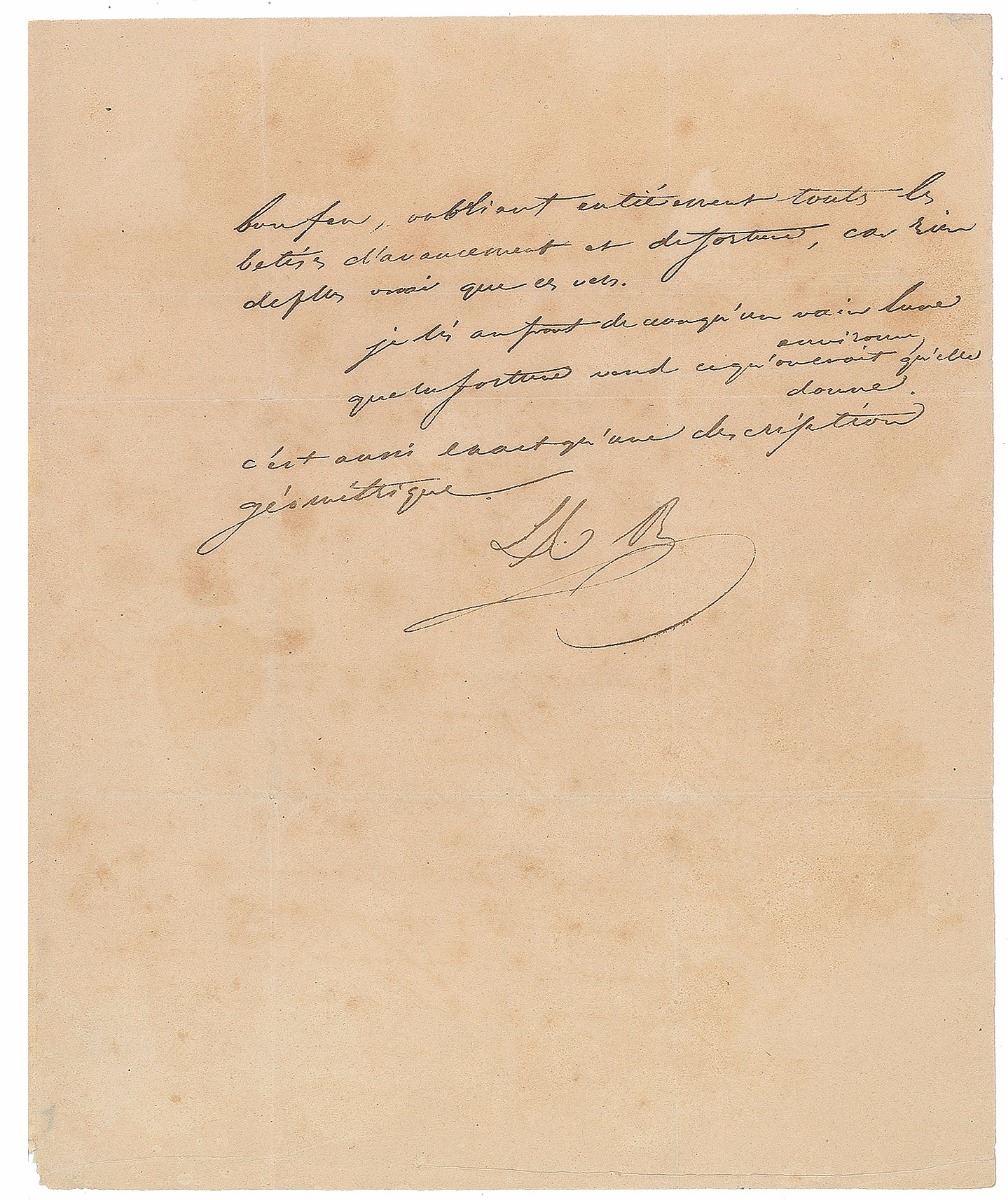 bon feu, oubliant entiérement touts les
betises d'avancement et de fortune, car rien
de plus vrai que ces vers.
je lis au front de ceux qu'un vain luxe
environne,
que la fortune vend ce qu'on croit qu'elle
donne.
c'est aussi exact qu'une description
géométrique.